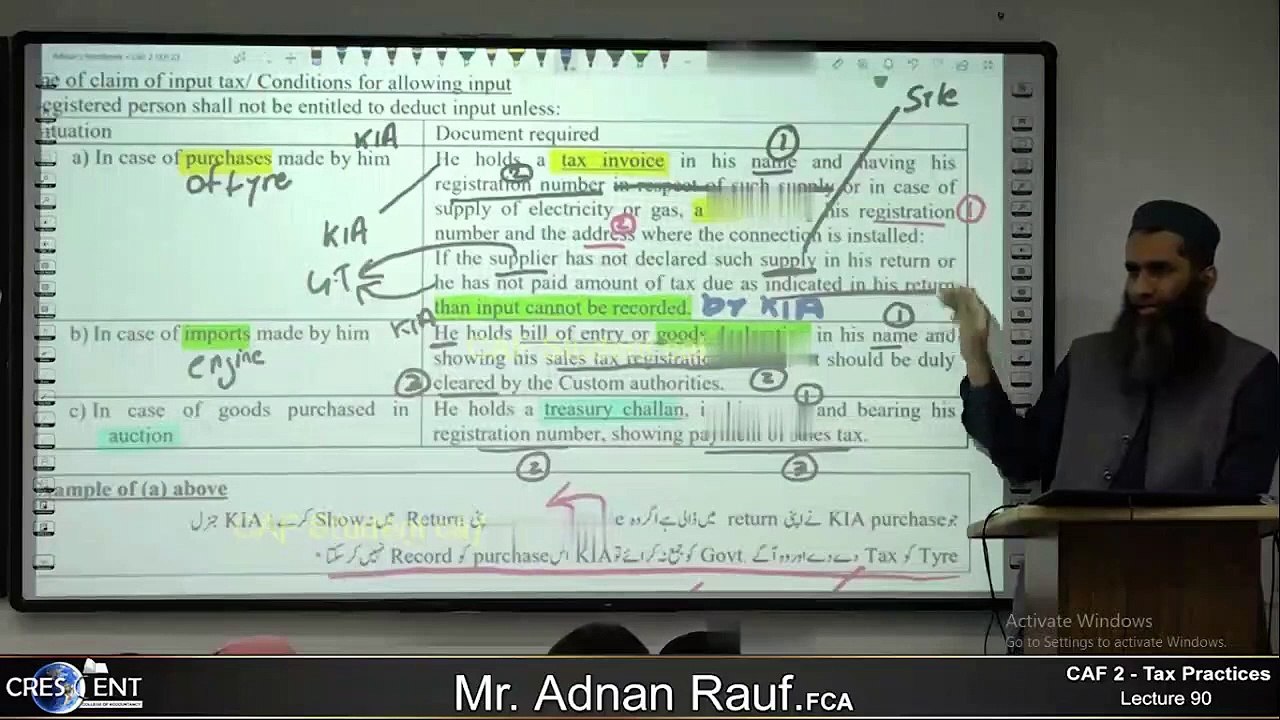 e of claim of input tax/ Conditions for allowing input
gistered person shall not be entitled to deduct input unless:
tuation
Document required
KIA
a) In case of purchases made by him
of tyre
He holds a tax invoice in his name and having his
registration number in respect of such supply or in case of
supply of electricity or gas, a his registration
number and the address where the connection is installed:
If the supplier has not declared such supply in his return or
he has not paid amount of tax due as indicated in his return
than input cannot be recorded. by KIA
Sale
1
2
1
2
KIA
G.T
b) In case of imports made by him
engine
KIA
He holds bill of entry or goods declaration in his name and
showing his sales tax registration t should be duly
cleared by the Custom authorities.
1
2
3
c) In case of goods purchased in
auction
He holds a treasury challan, i and bearing his
registration number, showing payment of sales tax.
1
2
3
ample of (a) above
جو KIA purchase نے اپنی return میں ڈالی ہے اگر وہ e پنی Return میں نہ Show کرے، KIA جنرل
Tyre کو Tax دے دے اور وہ آگے Govt. کو جمع نہ کرائے تو KIA اس purchase کو Record نہیں کر سکتا۔
Activate Windows
Go to Settings to activate Windows.
CRESCENT
COLLEGE OF ACCOUNTANCY
Mr. Adnan Rauf.FCA
CAF 2 - Tax Practices
Lecture 90